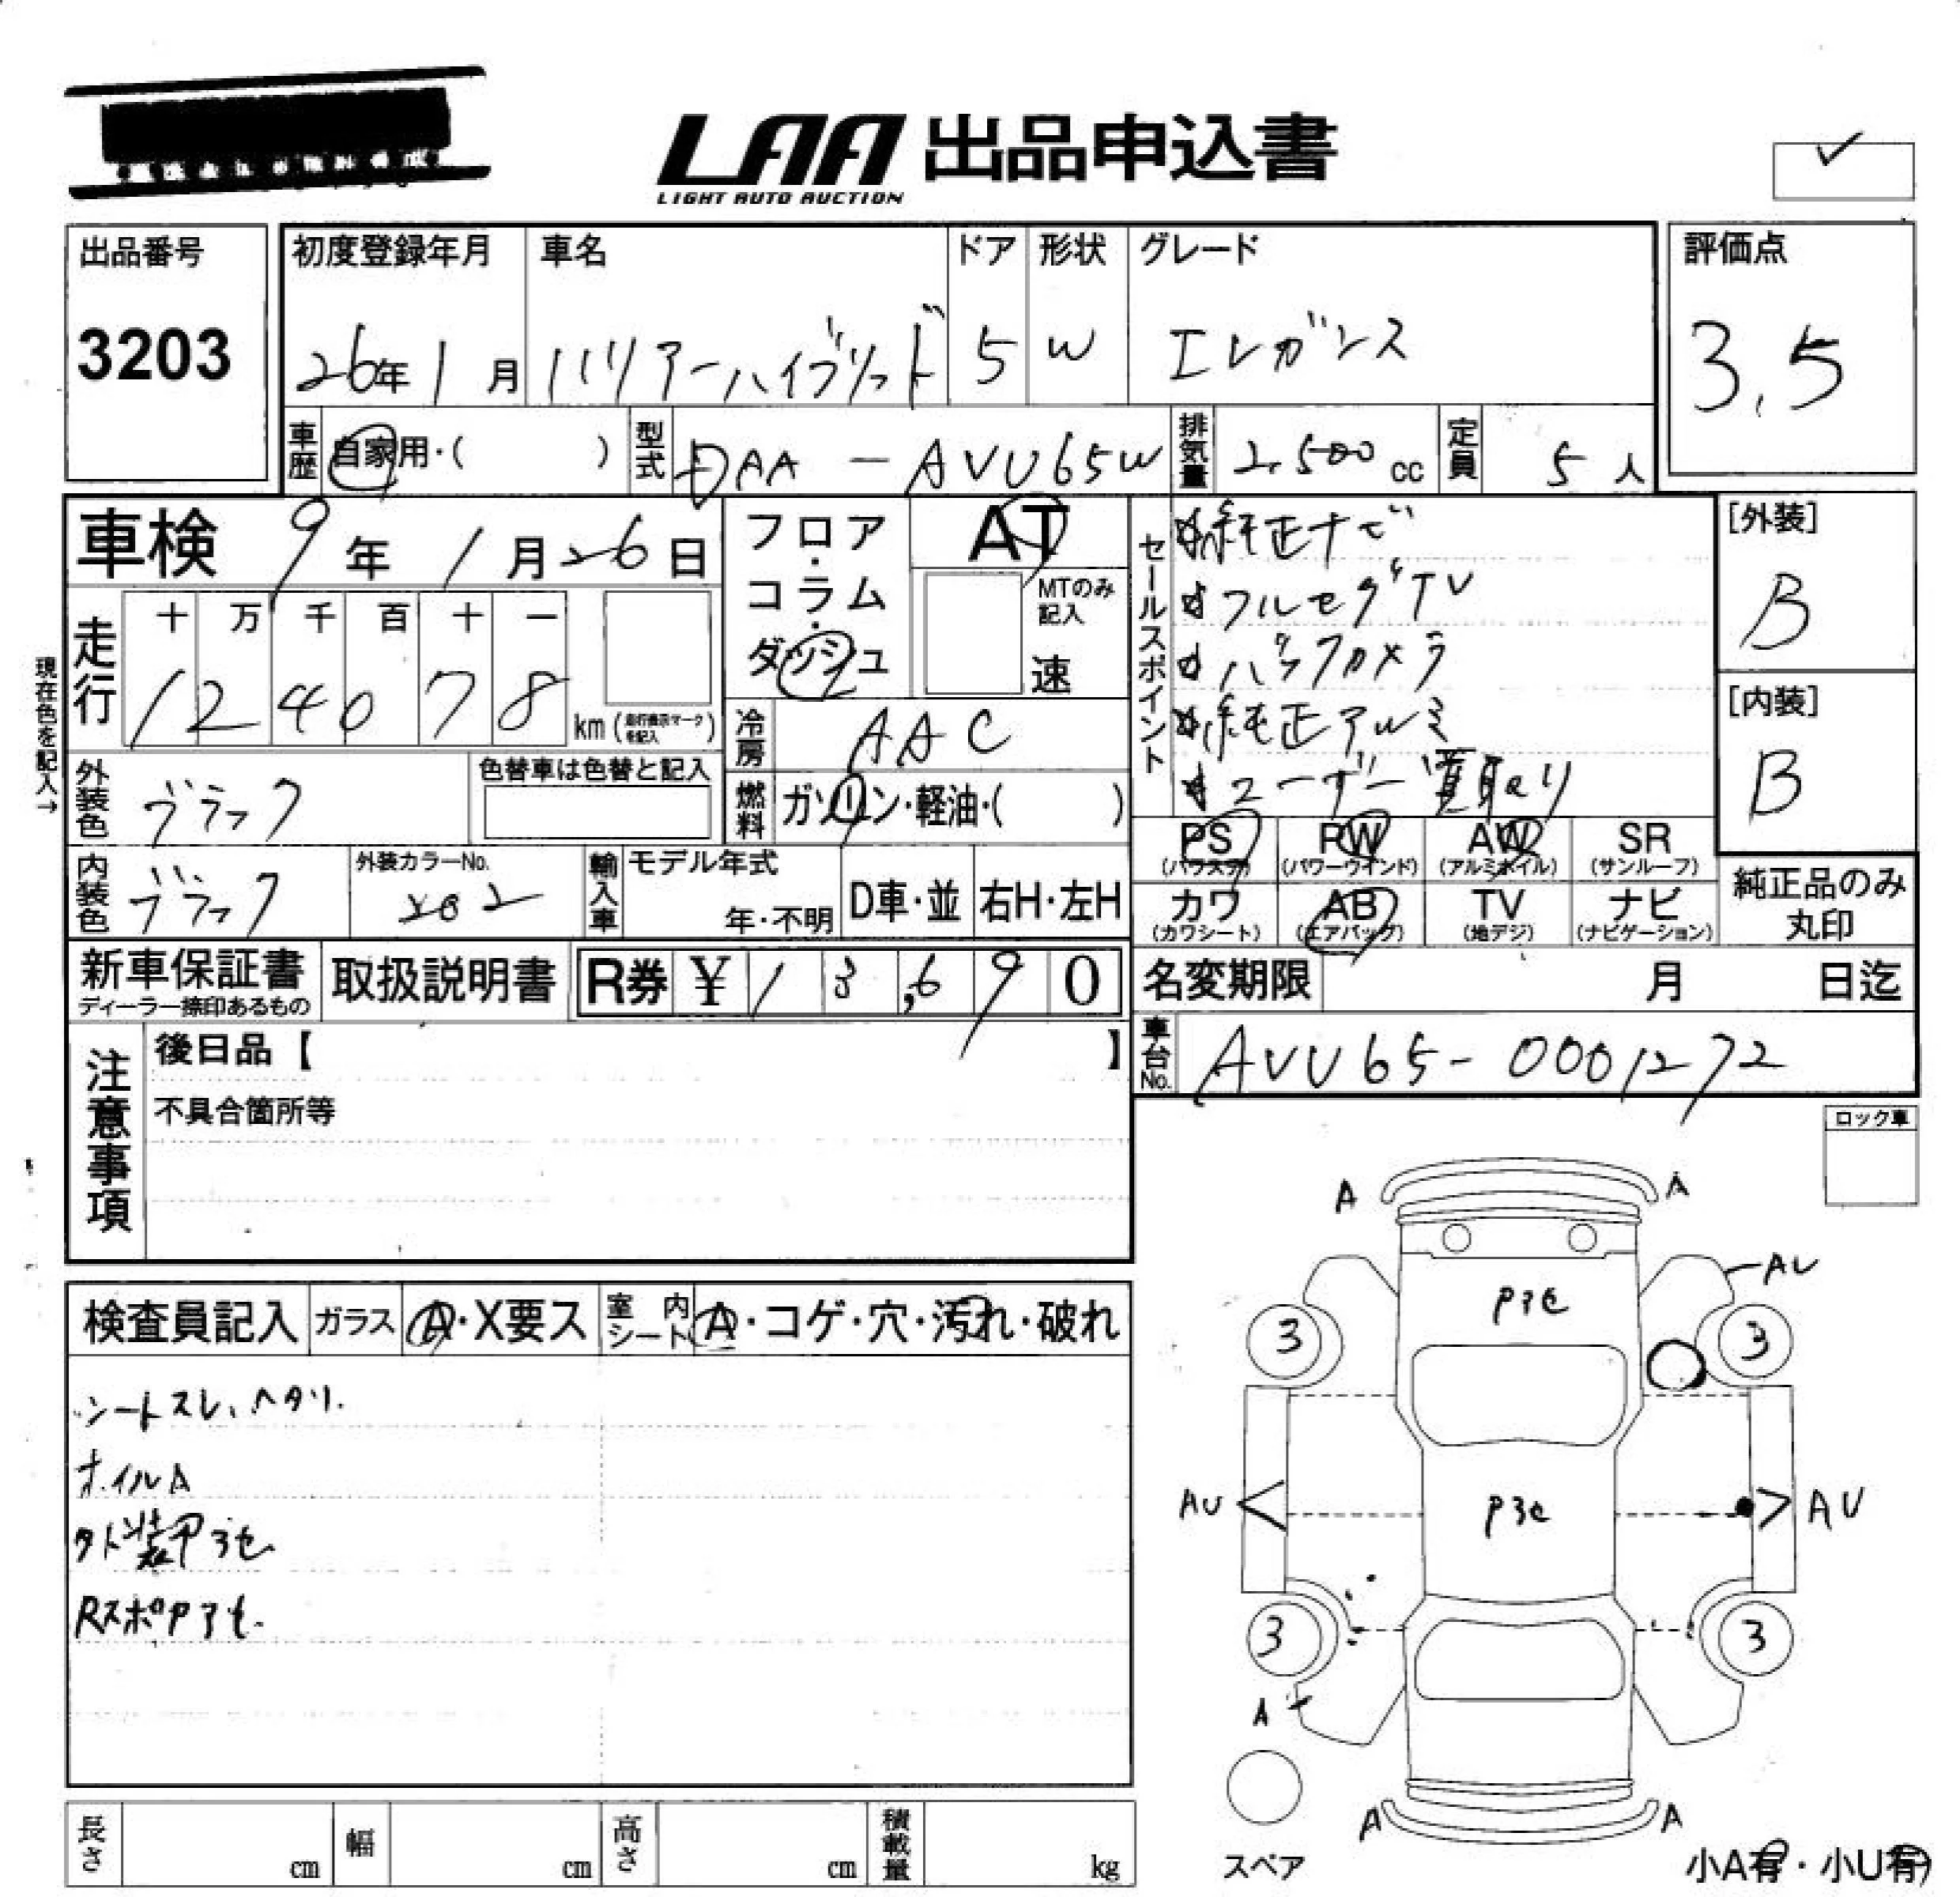 LAA 出品申込書
LIGHT AUTO AUCTION
出品番号
3203
初度登録年月
26年1月
車名
ハリアーハイブリッド
ドア
5
形状
W
グレード
エレガンス
評価点
3.5
車歴
自家用・( )
型式
DAA-AVU65W
排気量
2,500cc
定員
5人
車検 9年1月26日
フロア・コラム・ダッシュ
AT
MTのみ記入
速
セールスポイント
純正ナビ
フルセグTV
バックカメラ
純正アルミ
ユーザー買取り
[外装]
B
[内装]
B
現在色を記入→
走行
十 万 千 百 十 一
1 2 4 0 7 8 km(走行表示マークを記入)
冷房
AAC
外装色
ブラック
色替車は色替と記入
燃料
ガソリン・軽油・( )
PS (パワステ)
PW (パワーウインド)
AW (アルミホイル)
SR (サンルーフ)
カワ (カワシート)
AB (エアバック)
TV (地デジ)
ナビ (ナビゲーション)
純正品のみ丸印
内装色
ブラック
外装カラーNo.
202
輸入車
モデル年式
年・不明
D車・並
右H・左H
新車保証書
ディーラー捺印あるもの
取扱説明書
R券 ¥13,690
名変期限 月 日迄
車台No.
AVU65-0001272
注意事項
後日品【 】
不具合箇所等
ロック車
検査員記入
ガラス
A・X要ス
室内シート
A・コゲ・穴・汚れ・破れ
シートスレ、ヘタリ.
ホイルA
外装P3セ
RスポP3セ.
A
A
AU
P3セ
3
3
AU
P3セ
AU
3
3
A
A
A
スペア
小A有・小U有
長さ cm
幅 cm
高さ cm
積載量 kg